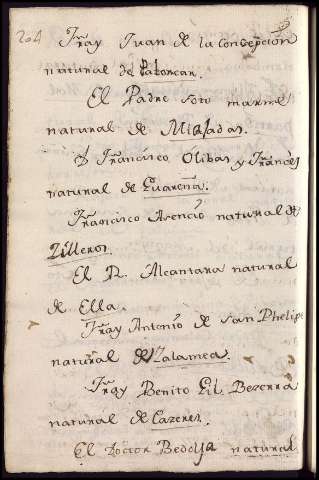 204
Fray Juan de la Conçepcion
natural de
El Padre Soto
natural de Miajadas.
Francisco Olibas y Frances
natural de Guareña.
Francisco Asencio natural de
Zilleros.
El P. Alcantara natural
de Ella.
Fray Antonio de San Phelipe
natural de Zalamea.
Fray Benito Gil Bezerra
natural de Cazeres.
El Doctor Bedoya natural